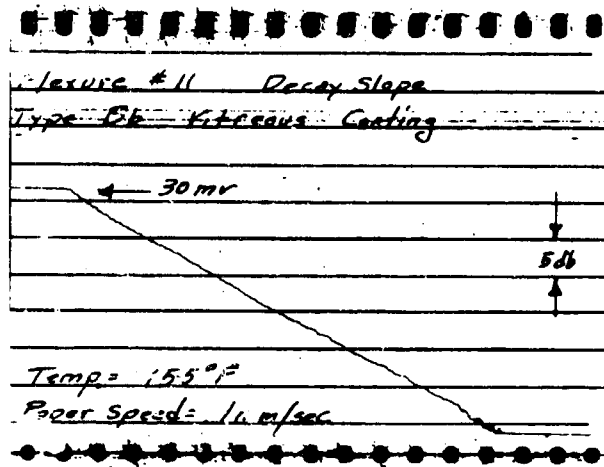 #11 Decay Slope
Type Vitreous Coating
30 mv
5db
Temp = 155°F
Paper Speed = /sec